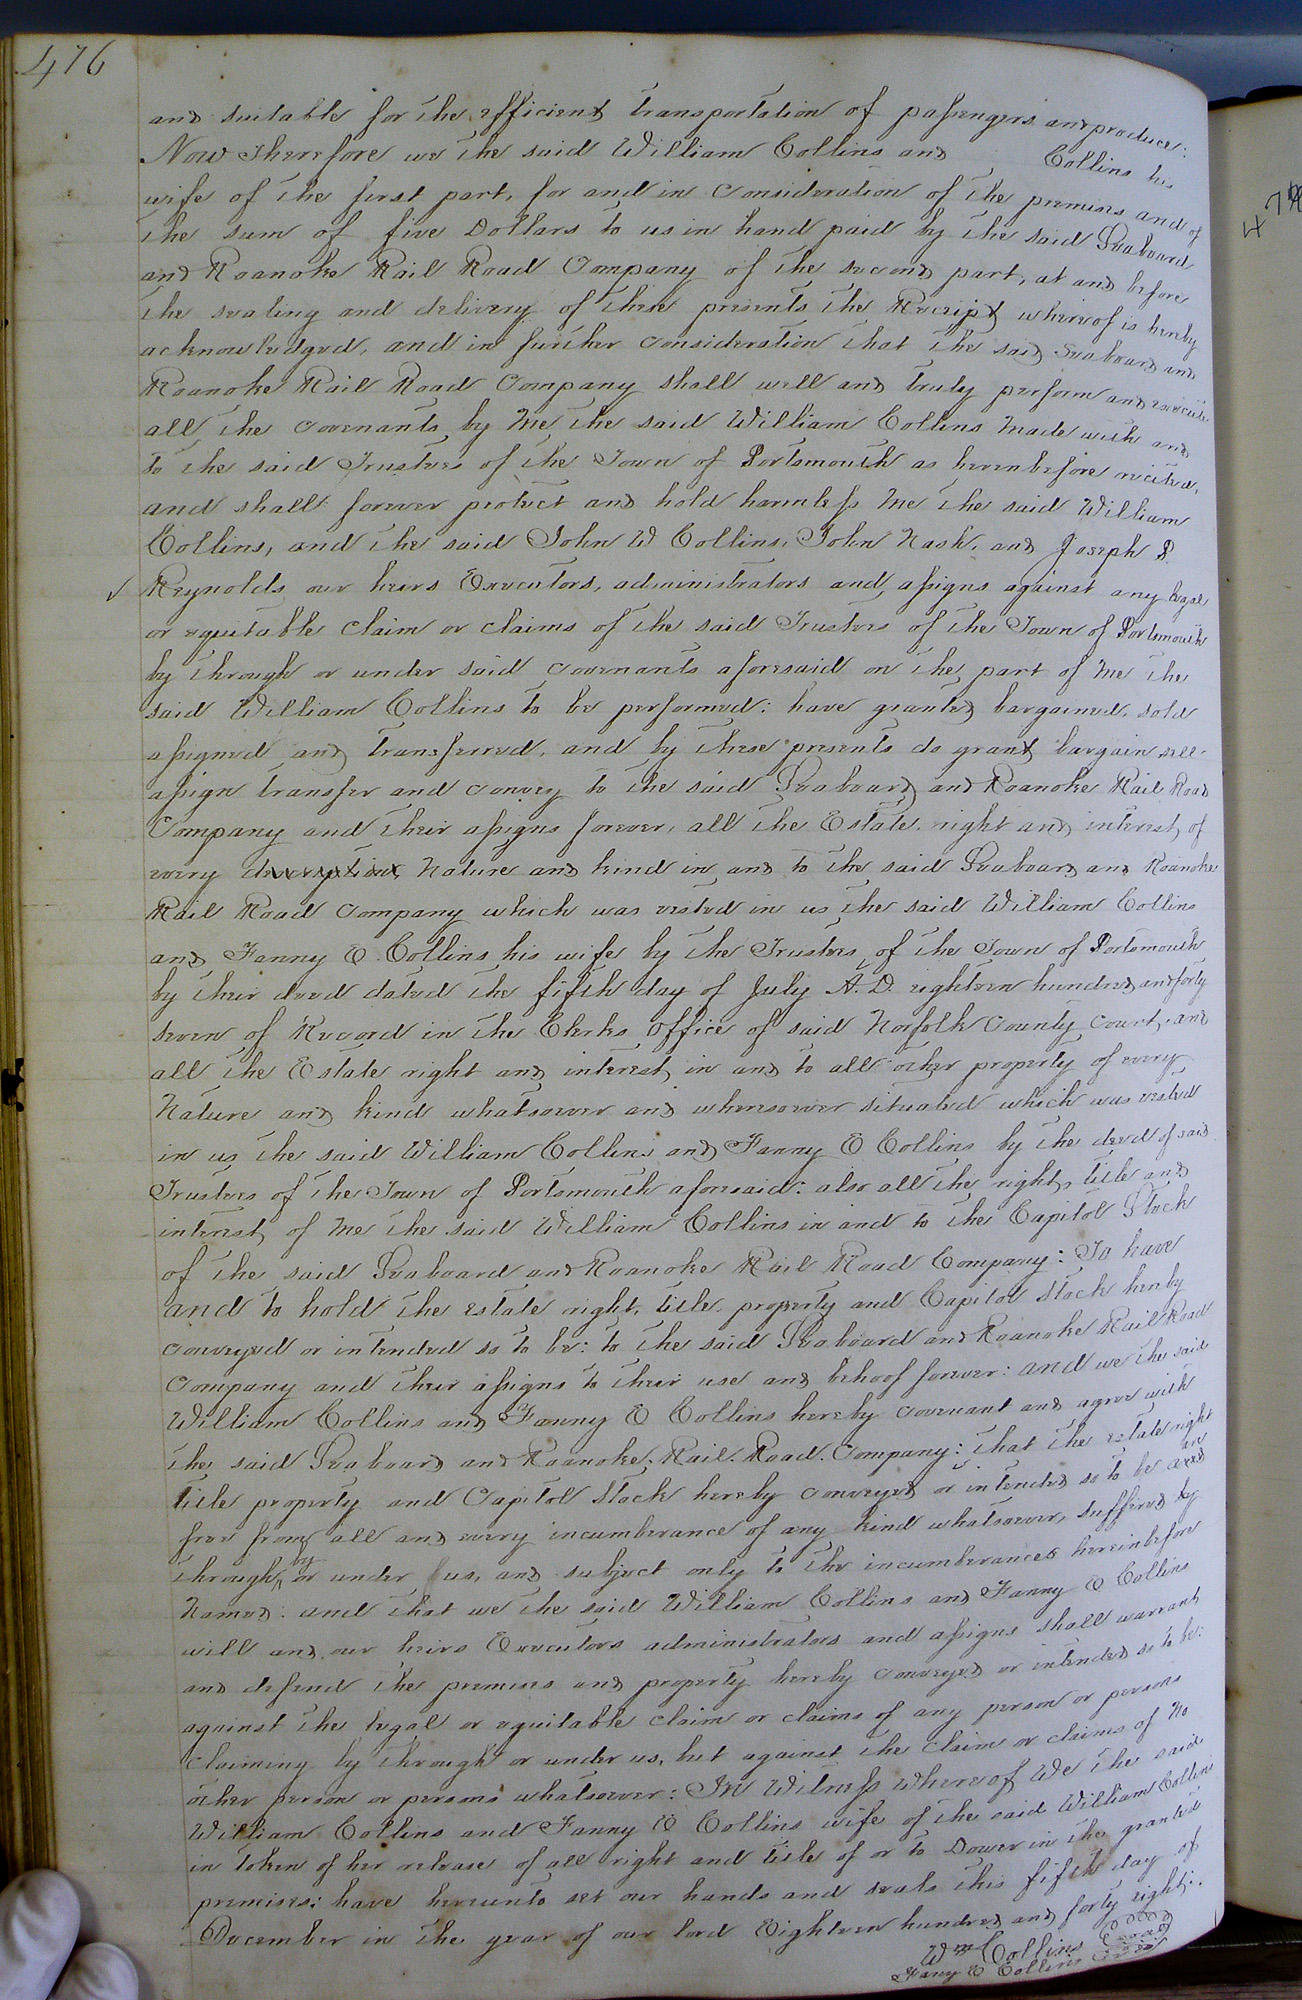 476
and suitable for the efficient transportation of passengers and produce:
Now Therefore we the said William Collins and Collins his
wife of the first part, for and in consideration of the premises and of
the sum of five Dollars to us in hand paid by the said Seaboard
and Roanoke Rail Road Company of the second part, at and before
the sealing and delivery of these presents the Receipt whereof is hereby
acknowledged, and in further consideration that the said Seaboard and
Roanoke Rail Road Company shall well and truly perform and execute
all the covenants by Me the said William Collins made with and
to the said Trustees of the Town of Portsmouth as herein before recited,
and shall forever protect and hold harmless Me the said William
Collins, and the said John W Collins, John Nash, and Joseph P.
Reynolds our heirs Executors, administrators and assigns against any legal
or equitable claim or claims of the said Trustees of the Town of Portsmouth
by through or under said covenants aforesaid on the part of Me the
said William Collins to be performed: have granted bargained, sold
assigned and transferred, and by these presents do grant bargain sell
assign transfer and convey to the said Seaboard and Roanoke Rail Road
Company and their assigns forever, all the Estate, right and interest of
every description, Nature and kind in and to the said Seaboard and Roanoke
Rail Road Company which was vested in us the said William Collins
and Fanny E Collins his wife by the Trustees of the Town of Portsmouth
by their deed dated the fifth day of July A.D. eighteen hundred and forty
seven of Record in the Clerks office of said Norfolk County Court, and
all the Estate right and interest in and to all other property of every
Nature and kind whatsoever and wheresoever situated which was vested
in us the said William Collins and Fanny E Collins by the deed of said
Trustees of the Town of Portsmouth aforesaid: also all the right, title and
interest of Me the said William Collins in and to the Capitol Stock
of the said Seaboard and Roanoke Rail Road Company: To have
and to hold the estate right, title, property and Capitol Stock hereby
conveyed or intended so to be: to the said Seaboard and Roanoke Rail Road
Company and their assigns to their use and behoof forever: and we the said
William Collins and Fanny E Collins hereby covenant and agree with
the said Seaboard and Roanoke. Rail. Road. Company: that the estate right
title property and Capitol Stock hereby conveyed or intended so to be are
free from all and every incumberance of any kind whatsoever, suffered by
through, by or under us, and subject only to the incumberances hereinbefore
Named: and that we the said William Collins and Fanny E Collins
will and our heirs Executors administrators and assigns shall warrant
and defend the premises and property hereby conveyed or intended so to be:
against the legal or equitable claim or claims of any person or persons
claiming by through or under us, but against the claim or claims of No
other person or persons whatsoever: In Witness whereof We the said
William Collins and Fanny E Collins wife of the said William Collins
in token of her release of all right and title of or to Dower in the granted
premises: have hereunto set our hands and seals this fifth day of
December in the year of our lord Eighteen hundred and forty eight:.
Wm Collins Seal
Fany E Collins Seal